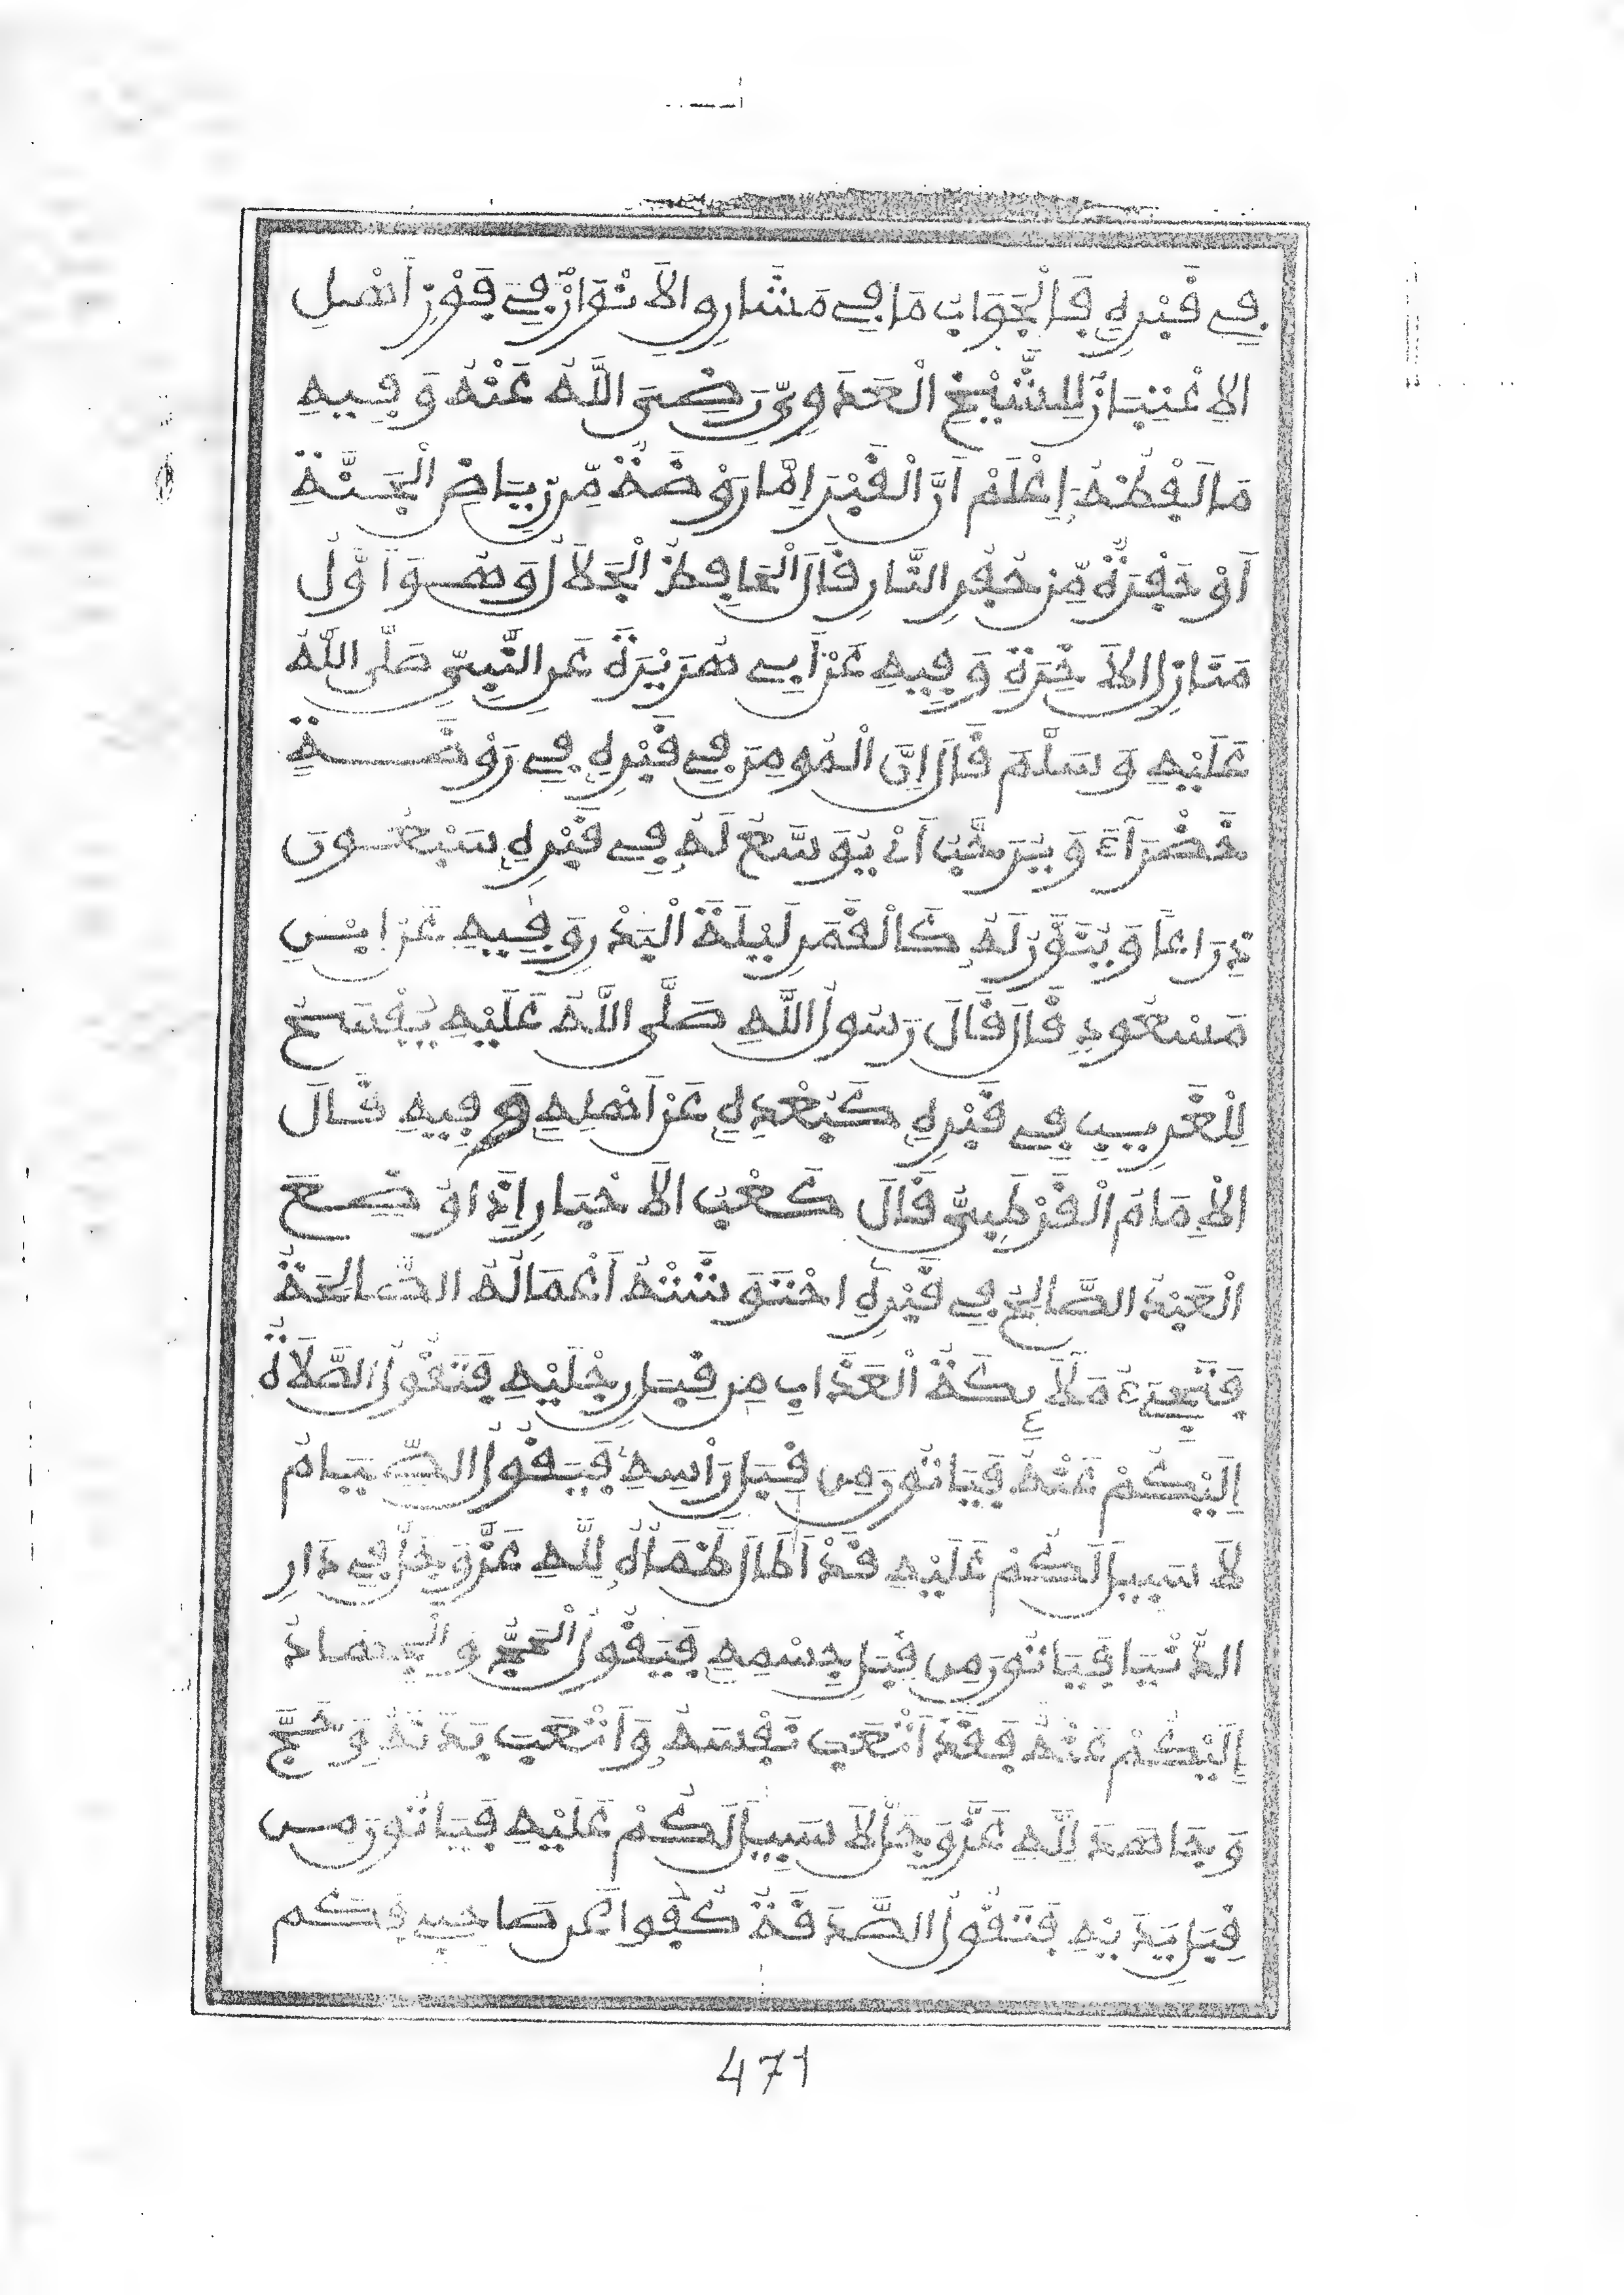 فِي قَبْرِهِ فَالْجَوَابُ مَا فِي مَشَارِقِ الْأَنْوَارِ فِي فَوْزِ أَهْلِ
الْاِعْتِبَارِ لِلشَّيْخِ الْعَدَوِيِّ رَضِيَ اللَّهُ عَنْهُ وَفِيهِ
مَا لَفْظُهُ إِعْلَمْ أَنَّ الْقَبْرَ إِمَّا رَوْضَةٌ مِّن رِيَاضِ الْجَنَّةِ
أَوْ حُفْرَةٌ مِّنْ حُفَرِ النَّارِ قَالَ الْحَافِظُ الْجَلَالُ وَهُوَ أَوَّلُ
مَنَازِلِ الْآخِرَةِ وَفِيهِ عَنْ أَبِي هُرَيْرَةَ عَنِ النَّبِيِّ صَلَّى اللَّهُ
عَلَيْهِ وَسَلَّمَ قَالَ إِنَّ الْمُومِنَ فِي قَبْرِهِ فِي رَوْضَةٍ
خَضْرَآءَ وَيُرَحَّبُ أَنْ يُوَسَّعُ لَهُ فِي قَبْرِهِ سَبْعُونَ
ذِرَاعًا وَيُنَوَّرُ لَهُ كَالْقَمَرِ لَيْلَةَ الْبَدْرِ وَفِيهِ عَنْ ابْنِ
مَسْعُودٍ قَالَ قَالَ رَسُولُ اللَّهِ صَلَّى اللَّهُ عَلَيْهِ يُفْسَحُ
لِلْغَرِيبِ فِي قَبْرِهِ كَبُعْدِهِ عَنْ أَهْلِهِ وَفِيهِ قَالَ
الْإِمَامُ الْقُرْطُبِيُّ قَالَ كَعْبُ الْأَحْبَارِ إِذَا وُضِعَ
الْعَبْدُ الصَّالِحُ فِي قَبْرِهِ احْتَوَشَتْهُ أَعْمَالُهُ الصَّالِحَةُ
فَتَجِيءُ مَلَآئِكَةُ الْعَذَابِ مِن قِبَلِ رِجْلَيْهِ فَتَقُولُ الصَّلَاةُ
إِلَيْكُمْ عَنْهُ فَيَاتُونَ مِن قِبَلِ رَأْسِهِ فَيَقُولُ الصِّيَامُ
لَا سَبِيلَ لَكُمْ عَلَيْهِ قَدْ أَطَالَ ظَمَأَهُ لِلَّهِ عَزَّ وَجَلَّ فِي دَارِ
الدُّنْيَا فَيَاتُونَ مِن قِبَلِ جِسْمِهِ فَيَقُولُ الْحَجُّ وَالْجِهَادُ
إِلَيْكُمْ عَنْهُ فَقَدْ أَتْعَبَ نَفْسَهُ وَأَتْعَبَ بَدَنَهُ وَحَجَّ
وَجَاهَدَ لِلَّهِ عَزَّ وَجَلَّ لَا سَبِيلَ لَكُمْ عَلَيْهِ فَيَاتُونَ مِن
قِبَلِ يَدَيْهِ فَتَقُولُ الصَّدَقَةُ كُفُّوا عَن صَاحِبِي فَكَم
471